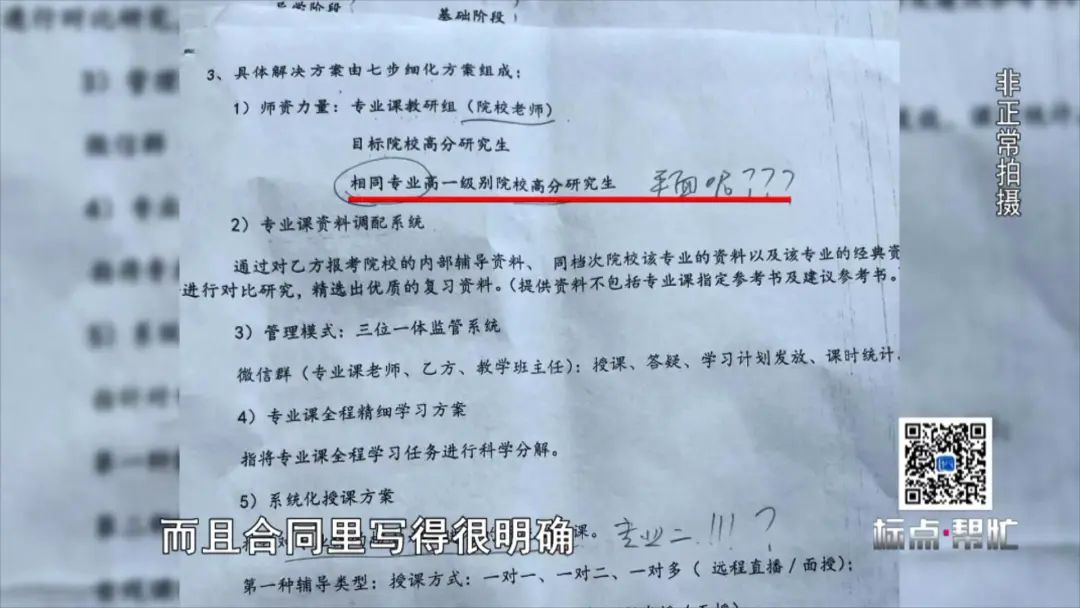 导学阶段
基础阶段
3、具体解决方案由七步细化方案组成：
1）师资力量：专业课教研组（院校老师）
目标院校高分研究生
相同专业高一级别院校高分研究生 平面呢？？？
2）专业课资料调配系统
通过对乙方报考院校的内部辅导资料、 同档次院校该专业的资料以及该专业的经典资
进行对比研究，精选出优质的复习资料。（提供资料不包括专业课指定参考书及建议参考书。
3）管理模式：三位一体监管系统
微信群（专业课老师、乙方、教学班主任）：授课、答疑、学习计划发放、课时统计、
4）专业课全程精细学习方案
指将专业课全程学习任务进行科学分解。
5）系统化授课方案
课。 专业二！！！？
第一种辅导类型：授课方式：一对一、一对二、一对多（ 远程直播/面授）；
非正常拍摄
标点·帮忙
而且合同里写得很明确